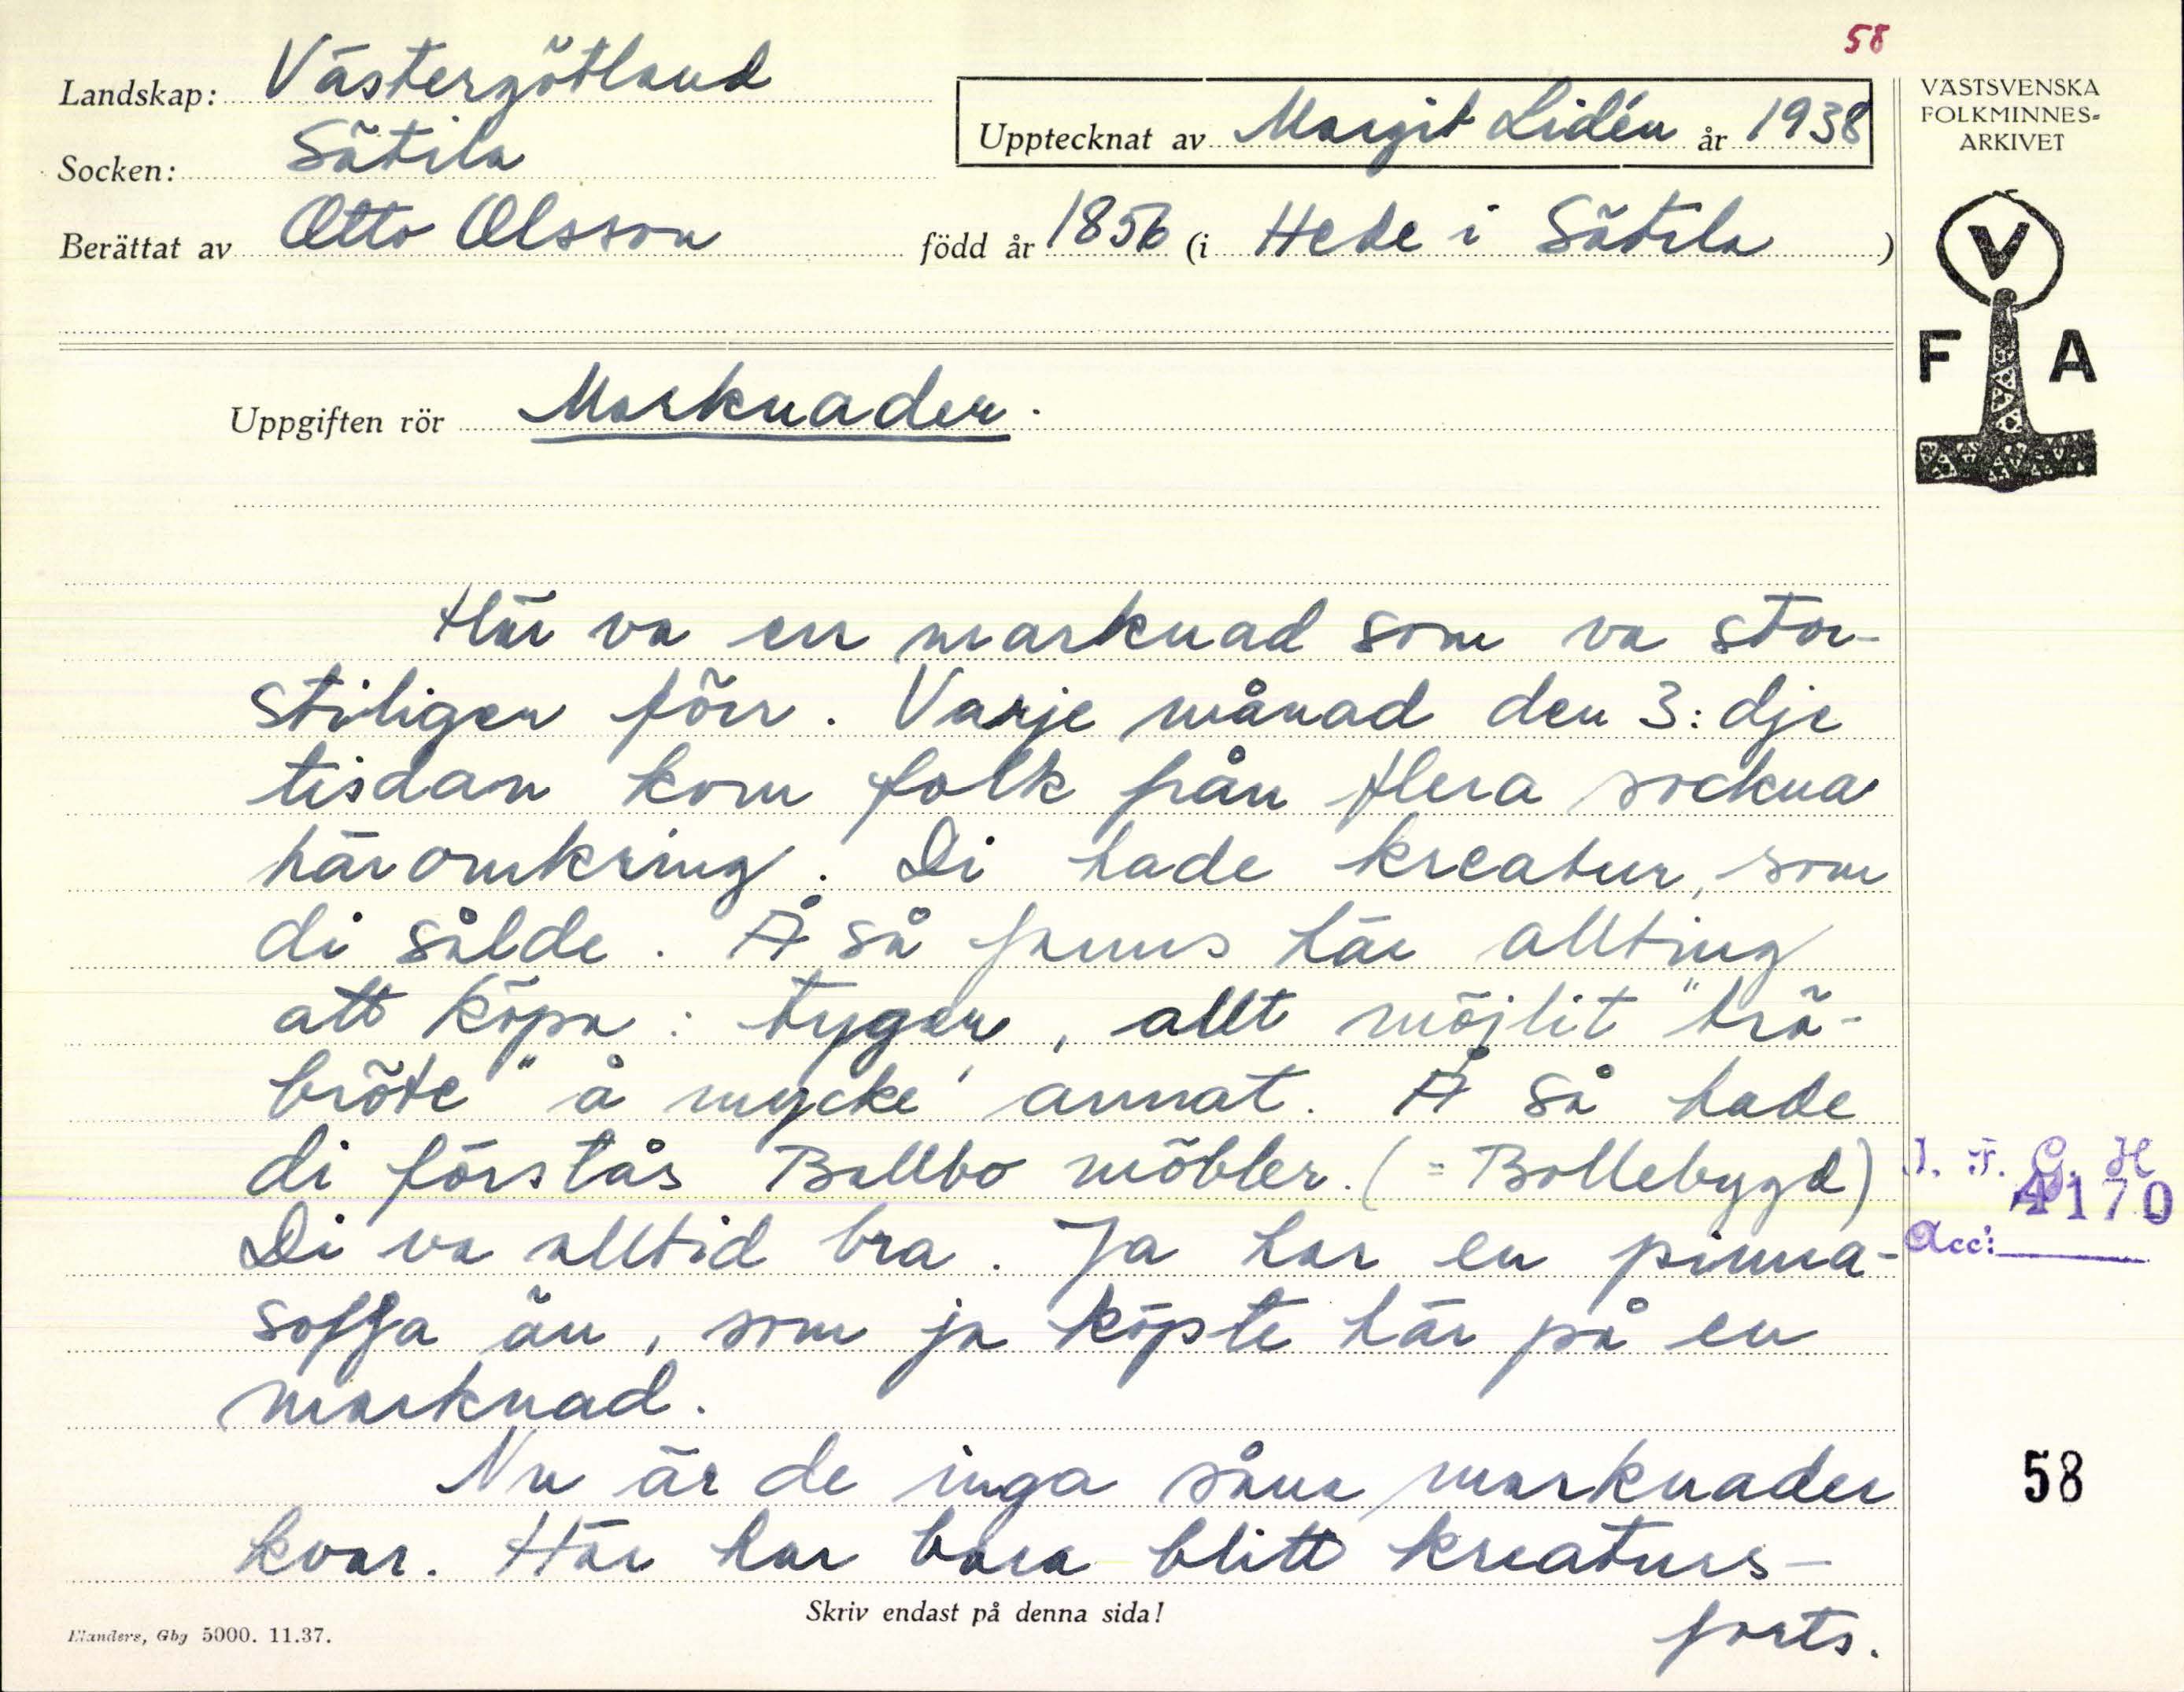 58
Landskap: Västergötland
Socken: Sätila
Berättat av Otto Olsson född år 1856 (i Hede i Sätila)
Upptecknat av Margit Lidén år 1938
VÄSTSVENSKA
FOLKMINNES-
ARKIVET
V
F A
Uppgiften rör Marknader.
Här va en marknad som va stor-
stiligen förr. Varje månad den 3:dje
tisdan kom folk från flera sockna
häromkring. Di hade kreatur, som
di sålde. Å så fanns här allting
att köpa: tyger, allt möjlit "trä-
bröte" å mycke' annat. Å så hade
di förstås Bollbo möbler. (= Bollebygd)
Di va alltid bra. Ja har en pinna-
soffa än, som ja köpte här på en
marknad.
Nu är de inga såna marknader
kvar. Här har bara blitt kreaturs-
forts.
I. F. G. H
4170
Acc:
58
Skriv endast på denna sida!
Elanders, Gbg 5000. 11.37.